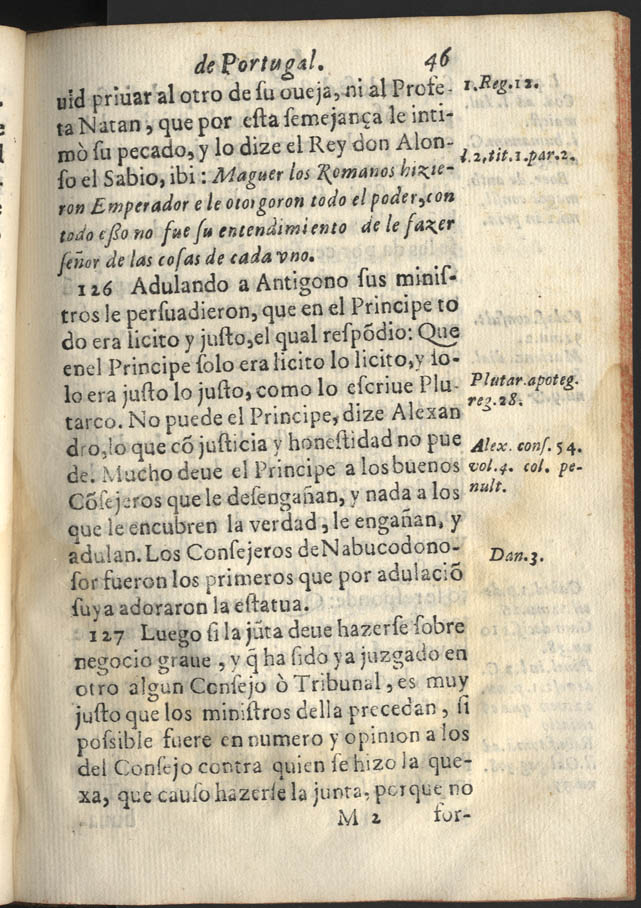 de Portugal. 46
uid priuar al otro de su oueja, ni al Profe-
ta Natan, que por esta semejança le inti-
mò su pecado, y lo dize el Rey don Alon-
so el Sabio, ibi: Maguer los Romanos hizie-
ron Emperador e le otorgoron todo el poder, con
todo esso no fue su entendimiento de le fazer
señor de las cosas de cada vno.
1.Reg.12.
l.2.tit.1.par.2.
126 Adulando a Antigono sus minis-
tros le persuadieron, que en el Principe to
do era licito y justo, el qual respõdio: Que
enel Principe solo era licito lo licito, y so-
lo era justo lo justo, como lo escriue Plu-
tarco. No puede el Principe, dize Alexan
dro, lo que cõ justicia y honestidad no pue
de. Mucho deue el Principe a los buenos
Cõsejeros que le desengañan, y nada a los
que le encubren la verdad, le engañan, y
adulan. Los Consejeros de Nabucodono-
sor fueron los primeros que por adulaciõ
suya adoraron la estatua.
Plutar. apoteg.
reg.28.
Alex. cons. 54.
vol.4. col. pe-
nult.
Dan.3.
127 Luego si la jũta deue hazerse sobre
negocio graue, y q̃ ha sido ya juzgado en
otro algun Consejo ò Tribunal, es muy
justo que los ministros della precedan, si
possible fuere en numero y opinion a los
del Consejo contra quien se hizo la que-
xa, que causo hazerse la junta, porque no
M 2 for-